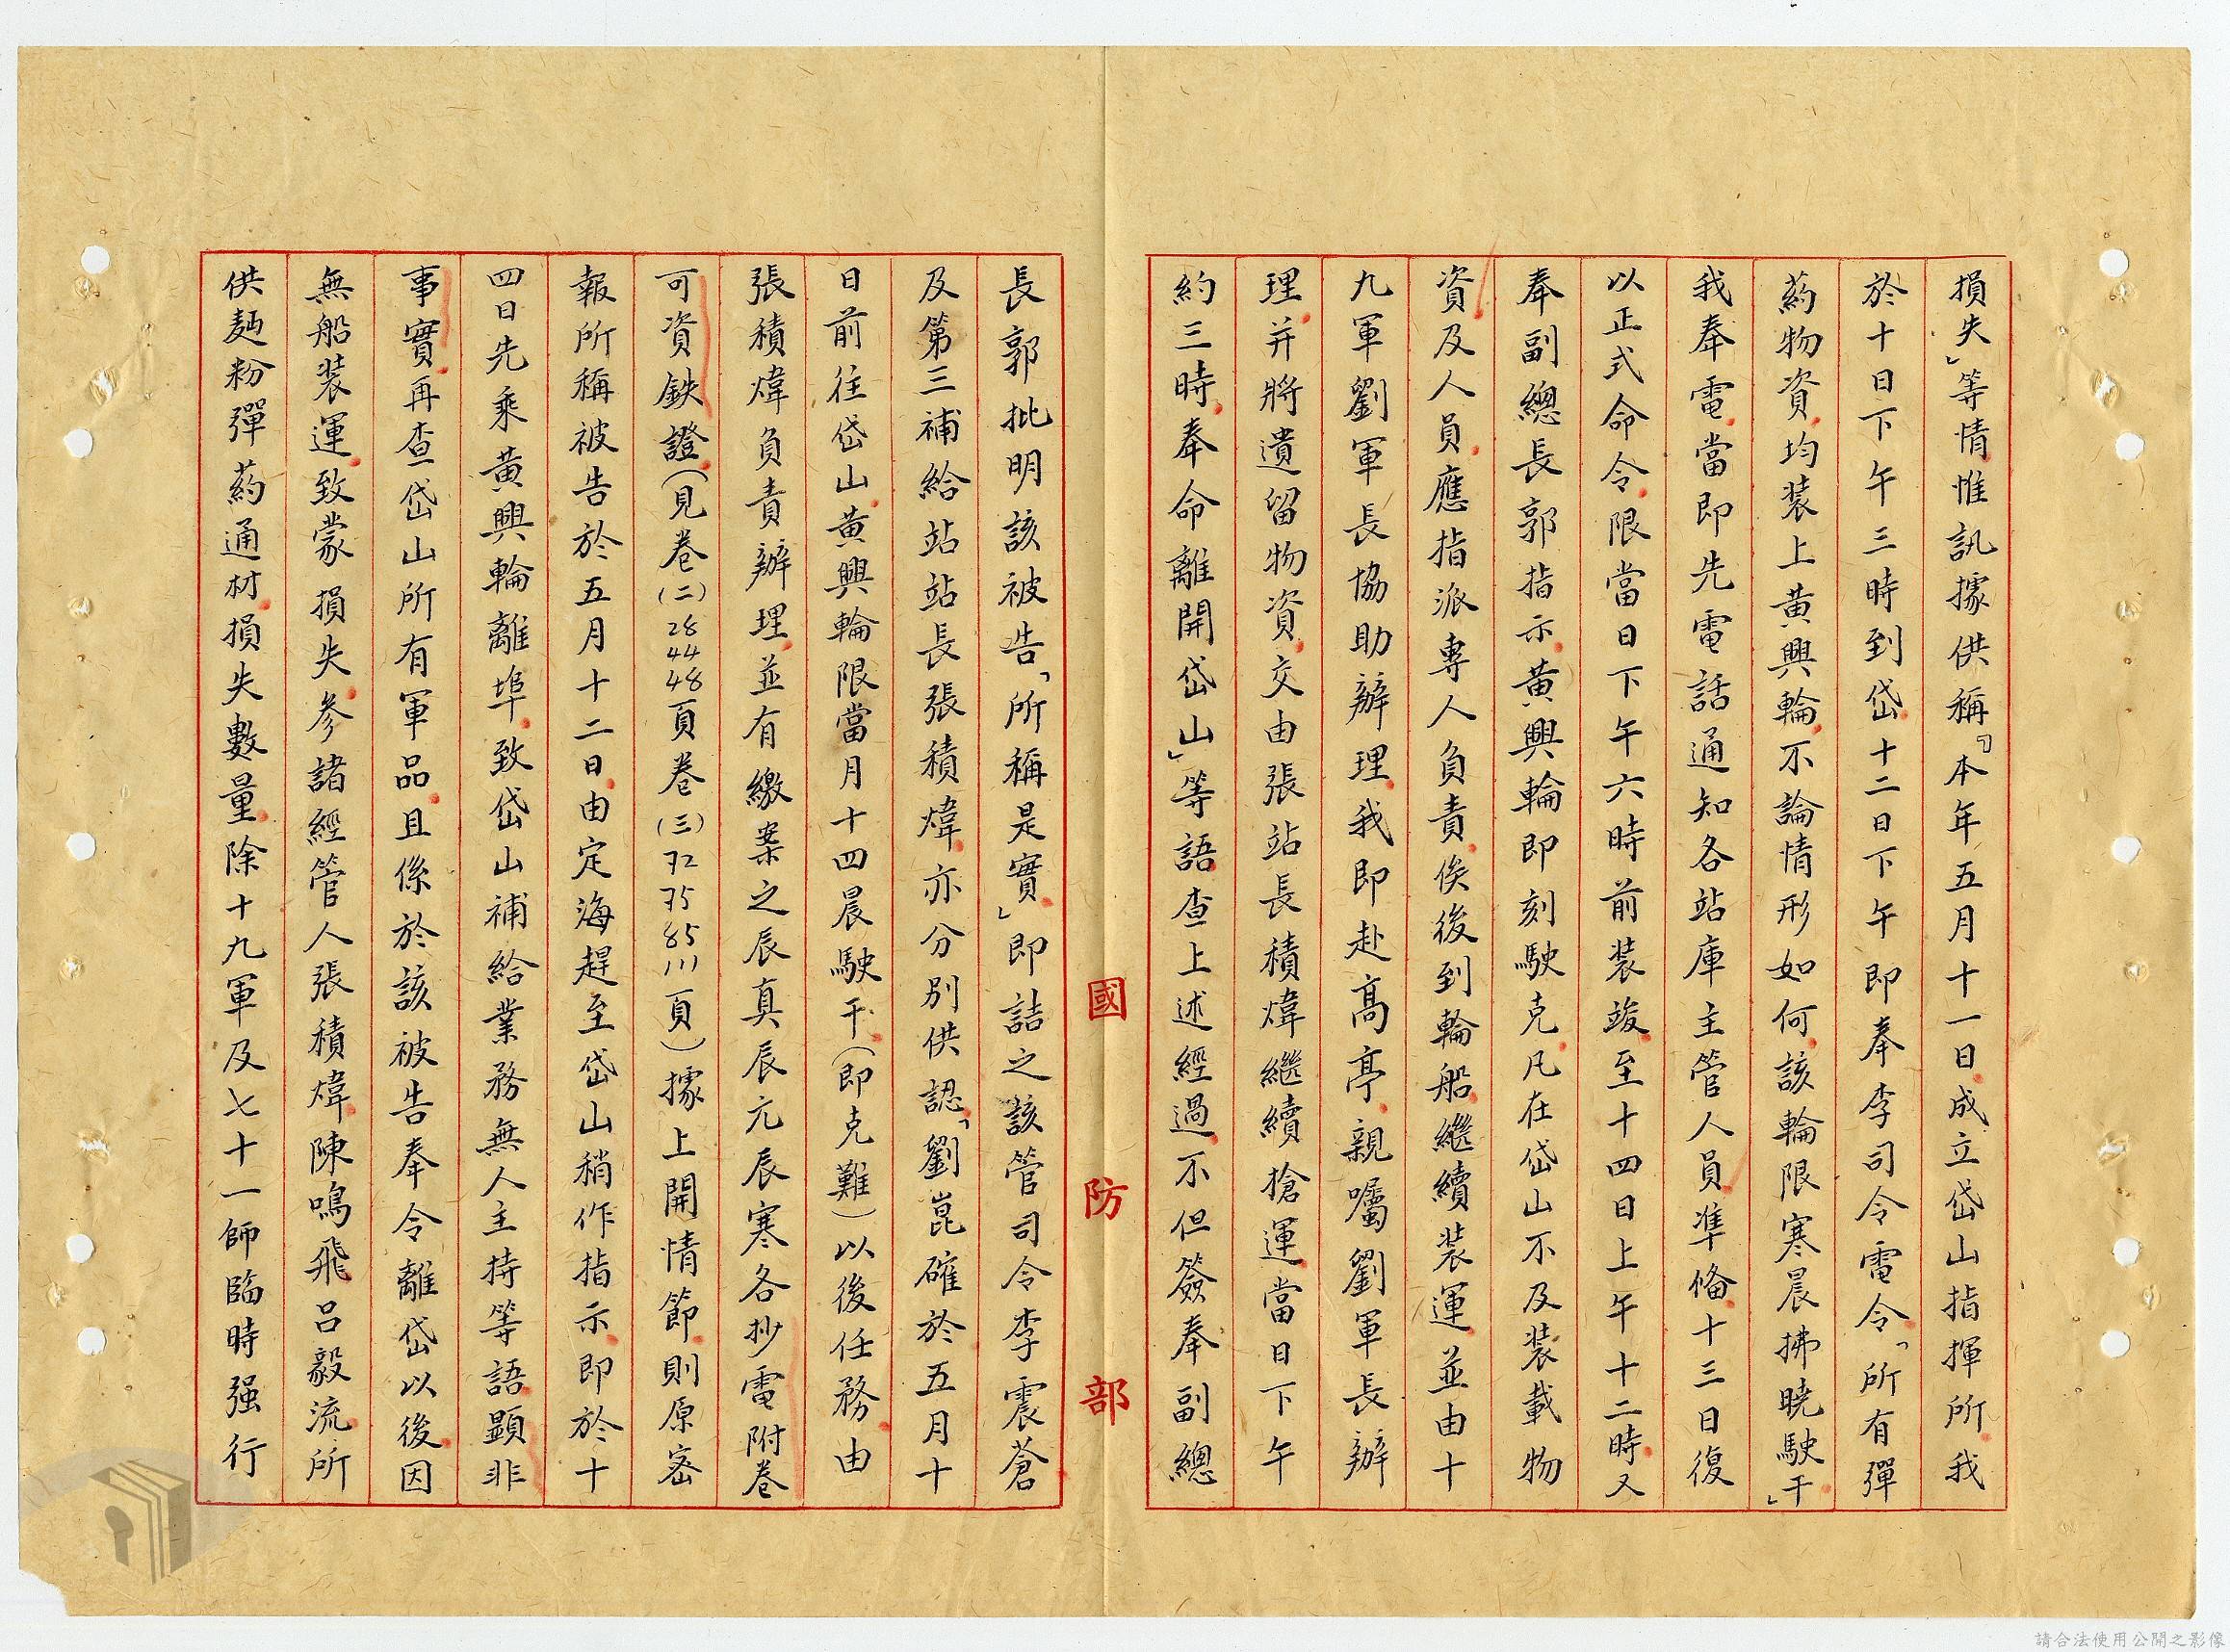 損失」等情惟訊據供稱『本年五月十一日成立岱山指揮所我
於十日下午三時到岱十二日下午即奉李司令電令「所有彈
葯物資均裝上黃興輪不論情形如何該輪限寒晨拂曉駛干」
我奉電當即先電話通知各站庫主管人員準俻十三日復
以正式命令限當日下午六時前裝竣至十四日上午十二時又
奉副總長郭指示黃興輪即刻駛克凡在岱山不及裝載物
資及人員應指派專人負責俟後到輪船繼續裝運並由十
九軍劉軍長協助辦理我即赴高亭親囑劉軍長辦
理并將遺留物資交由張站長積煒繼續搶運當日下午
約三時奉命離開岱山」等語查上述經過不但簽奉副總
國防部
長郭批明該被告「所稱是實」即詰之該管司令李震蒼
及第三補給站站長張積煒亦分別供認「劉崑確於五月十
日前往岱山黃興輪限當月十四晨駛干(即克難)以後任務由
張積煒負責辦理並有繳案之辰真辰元辰寒各抄電附卷
可資鉄證(見卷(二)28 44 48頁卷(三)72 75 85 111頁)據上開情節則原密
報所稱被告於五月十二日由定海趕至岱山稍作指示即於十
四日先乘黃興輪離埠致岱山補給業務無人主持等語顯非
事實再查岱山所有軍品且係於該被告奉令離岱以後因
無船裝運致蒙損失參諸經管人張積煒陳鳴飛呂毅流所
供麵粉彈葯通材損失數量除十九軍及七十一師臨時强行
請合法使用公開之影像